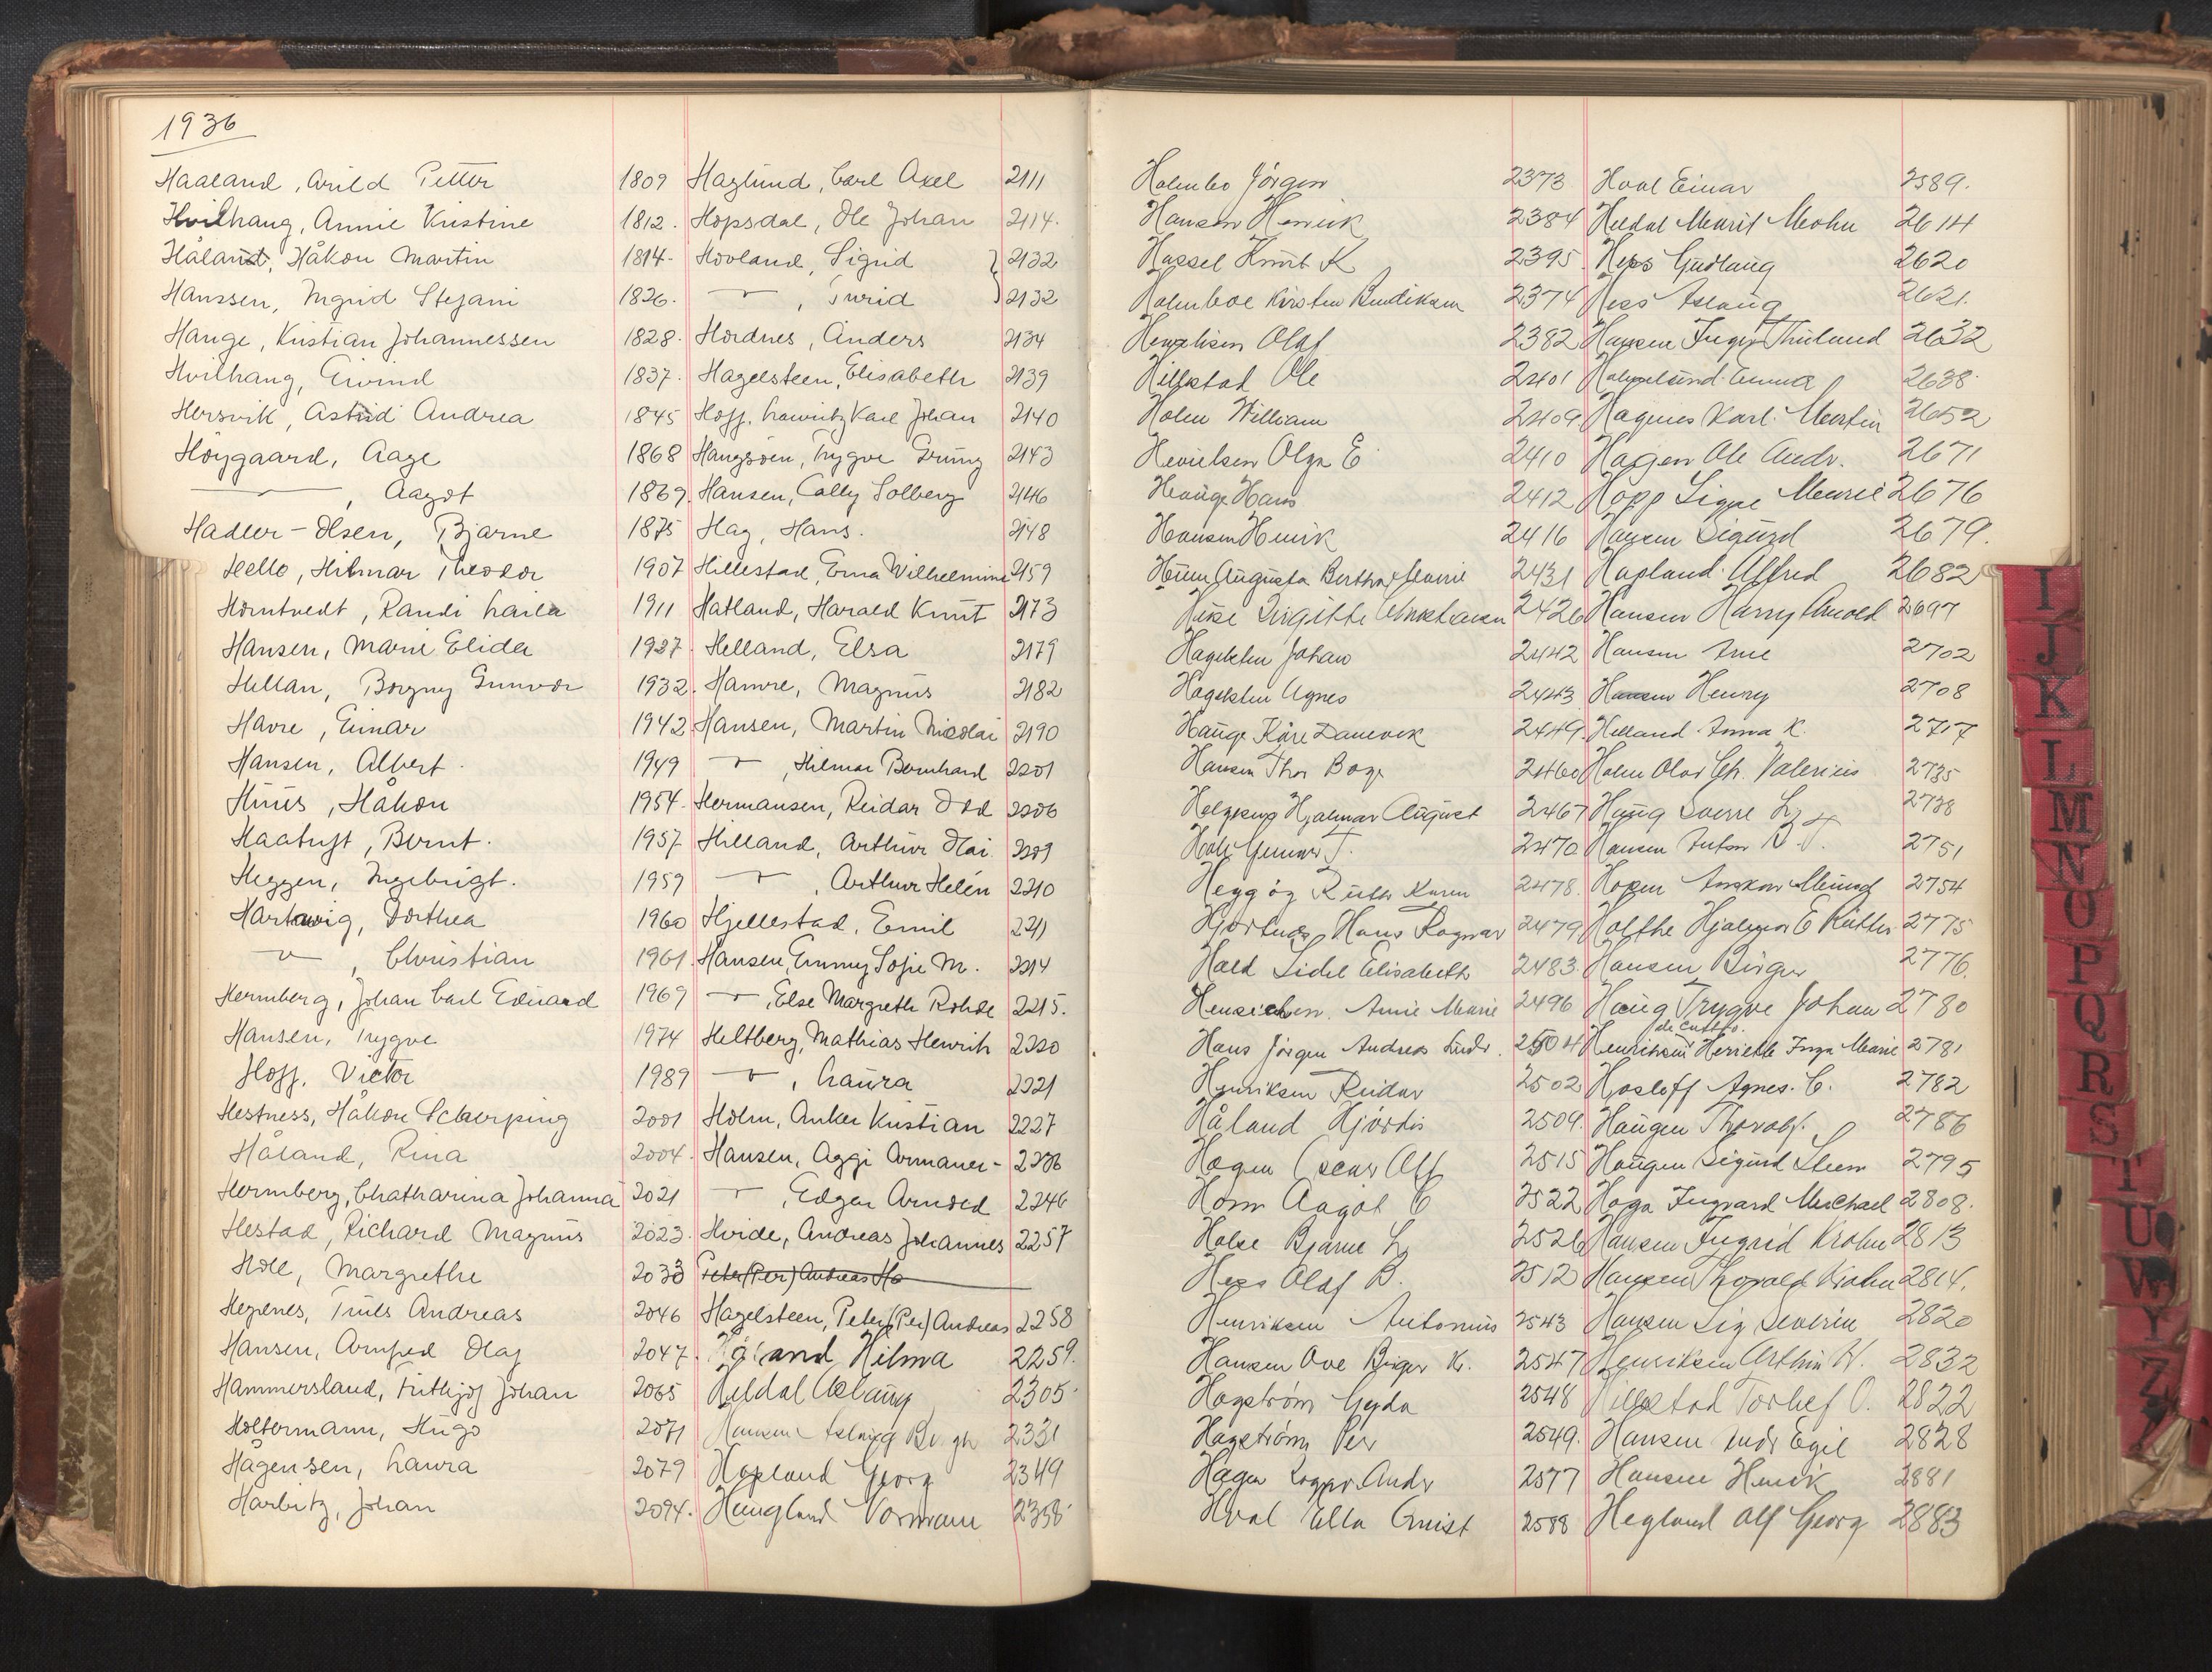 1936
Haaland, Arild Petter 1809
Hvilhaug, Annie Kristine 1812.
Håland, Håkon Martin 1814-
Hanssen, Ingrid Stefani 1826.
Hauge, Kristian Johannessen 1828.
Hvilhaug, Eivind 1837.
Hersvik, Astrid Andrea 1845
Høygaard, Aage 1868
——, Aagot 1869.
Hadler-Olsen, Bjarne 1875
Helle, Hilmar Theodor 1907
Horntvedt, Randi Laila 1911
Hansen, Marie Elida 1927.
Hellan, Borgny Gunvor 1932.
Havre, Einar 1942
Hansen, Albert. 1949
Huus, Håkon 1954.
Haatuft, Bernt. 1957
Heggen, Ingebrigt. 1959
Hartwig, Dorthea 1960
—, Christian 1961.
Hermberg, Johan Carl Eduard 1969
Hansen, Trygve 1974
Hoff, Victor 1989
Hestness, Håkon Scherping 2001
Håland, Rina 2004.
Hermberg, Chatharina Johanna 2021
Hestad, Richard Magnus 2023.
Holl, Margrethe 2033
Hegrenes, Truls Andreas 2046
Hansen, Arnfred Olaf 2047.
Hammersland, Frithjof Johan 2065
Holtermann, Hugo 2071
Hågensen, Laura 2079
Harbitz, Johan 2094.
Haglund, Carl Axel 2111
Hopsdal, Ole Johan 2114.
Hovland, Sigrid } 2132
—, Turid } 2132
Hordnes, Anders 2134
Hagelsteen, Elisabeth 2139
Hoff, Lauritz Karl Johan 2140
Haugsøen, Trygve Grung 2143
Hansen, Cally Solberg 2146
Hag, Hans. 2148
Hillestad, Erna Wilhelmine 2159
Hatland, Harald Knut 2173
Helland, Elsa 2179
Hamre, Magnus 2182
Hansen, Martin Nicolai 2190
—, Hilmar Bernhard 2201
Hermansen, Reidar Odd 2206
Helland, Arthur Kai 2209
—, Arthur Helén 2210
Hjellestad, Emil 2211
Hansen, Emmy Sofie M. 2214
—, Else Margrethe Rohde 2215.
Heltberg, Mathias Henrik 2220
—, Laura 2221
Holm, Anker Kristian 2227
Hansen, Aggi Armauer- 2236
—, Edgar Arnold 2246
Hvide, Andreas Johannes 2257
Peter (Per) Andreas Ha
Hagelsteen, Peter (Per) Andreas 2258
Håland Hilma 2259.
Heldal Aslaug 2305.
Hansen Aslaug Bergh 2331
Hopland Georg 2349
Haugland Normann 2358
Holmbo Jörgen 2373
Hansen Henrik 2384
Hassel Knut K 2395.
Holmboe Kirsten Bendiksen 2374
Hengelsen Olaf 2382
Hillestad Ole 2401
Holm William 2409.
Hevielsen Olga E 2410
Hauge Hans 2412
Hansen Henrik 2416
Huun Augusta Berthe Marie 2431
Birgitte 2426
Hagelsten Johan 2442
Hagelsten Agnes 2443
Hauge Kåre Danevik 2449.
Hansen Thor Boge 2460
Hjalmar August 2467
Holt Gunnar T. 2470
Heggøy Ruth Karen 2478.
Hjortnes Hans Ragnar 2479
Hald Sidsel Elisabeth 2483.
Henrichsen. Anne Marie 2496
Hans Jörgen Andreas Ludv. 2504
Henriksen Reidar 2502
Håland Hjördis 2509.
Hagen Oscar Alf 2515
Horn Aagot C 2522
Holse Bjarne L 2526
Hess Olaf B. 2512
Henriksen Antonius 2543
Hansen Ove Birger K. 2547
Hagström Gyda 2548
Hagström Per 2549.
Hagen Andr 2577
Hval Ella Qvist 2588
Hval Einar 2589.
Heldal Marit Mohn 2614
Hess Gudlaug 2620
Hess Aslaug 2621.
Hansen Inger Thulund 2632
Holmelund Emma 2638.
Hagenes Karl Martin 2652
Hagen Ole Andr. 2671
Hopp Signe Marie 2676
Hansen Sigurd 2679.
Hopland Alfred 2682
Hansen Harry Arnold 2697
Hansen Arne 2702
Hansen Henry 2708
Helland Anna K. 2717
Holm Olav Chr. Valerius 2735
Haug Sverre L 2738
Hansen Anton N. J. 2751
Hopen Haakon Munch 2754
Holthe Hjalmar E Ruths 2775
Hansen Birger 2776.
Haug Trygve Johan 2780
Henriksen Henriette Inga Marie 2781
Hosloff Agnes. C. 2782
Haugen Thorolf. 2786
Haugen Sigurd Steen 2795
Haga Ingvard Michael 2808.
Hansen Ingrid Krohn 2813
Hansen Thoralf Krohn 2814.
Hansen Sig Severin 2820
Henriksen Arthur W. 2832
Hillestad Torlef O. 2822
Hansen Ludv Egil 2828
Hansen Henrik 2881
Hegland Alf Georg 2883
I
J
K
L
M
N
O
P
Q
R
S
T
U
W
Y
Z